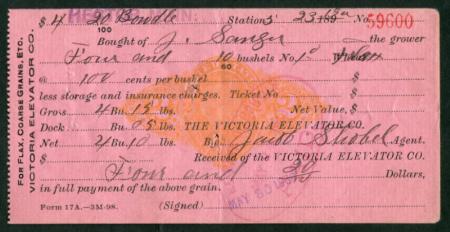 FOR FLAX, COARSE GRAINS, ETC.
VICTORIA ELEVATOR CO.
$ 4 20/100 Bowdle Station, 5/23 189 No. 59600
Bought of J. the grower
Four and 10/60 bushels No. 1
@ 100 cents per bushel $
less storage and insurance charges. Ticket No. $
Gross 4 Bu. 15 lbs. Net Value, $
Dock Bu. 05 lbs. THE VICTORIA ELEVATOR CO.
Net 4 Bu. 10 lbs. By Jacob Strobel Agent.
$ Received of the VICTORIA ELEVATOR CO.
Four and 20/100 Dollars,
in full payment of the above grain.
MAY 30
Form 17A.—3M-98. (Signed)